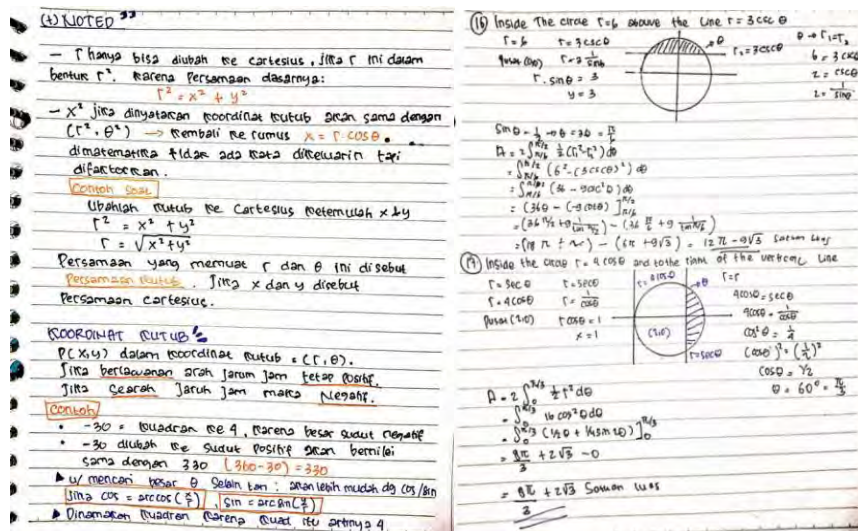 (+) NOTED
- r hanya bisa diubah ke cartesius, jika r ini dalam
bentuk r². Karena Persamaan dasarnya:
r² = x² + y²
- x² jika dinyatakan koordinat kutub akan sama dengan
(r², θ²) → kembali ke rumus x = r cosθ.
dimatematika tidak ada kata dikeluarin tapi
difaktorkan.
Contoh soal
Ubahlah kutub ke Cartesius ketemulah x & y
r² = x² + y²
r = √x²+y²
Persamaan yang memuat r dan θ ini disebut
Persamaan kutub. Jika x dan y disebut
Persamaan cartesius.
KOORDINAT KUTUB
P(x,y) dalam koordinat kutub = (r,θ).
Jika berlawanan arah jarum jam tetap positif.
Jika searah jarum jam maka Negatif.
Contoh
• -30 = kuadran ke 4, karena besar sudut negatif
• -30 diubah ke sudut positif akan bernilai
sama dengan 330 (360-30) = 330
▶ u/ mencari besar θ selain tan : akan lebih mudah dg cos/sin
Jika cos = arccos(x/r), sin = arcsin(y/r)
▶ Dinamakan kuadran karena quad itu artinya 4
(16) Inside The circle r=6 above the Line r = 3 csc θ
r=6 r=3cscθ
Pusat (0,0)
r.sinθ = 3
y = 3
θ
r₂=3cscθ
θ → r₁=r₂
6 = 3 cscθ
2 = cscθ
2 = 1/sinθ
Sinθ = 1/2 → θ = 30 = π/6
A = 2∫ 1/2 (r₁²-r₂²) dθ
= ∫ (6² - (3cscθ)²) dθ
= ∫ (36 - 9csc²θ) dθ
= (36θ - (-9cotθ)]
= 12π - 9√3 Satuan luas
(17) Inside the circle r = 4 cosθ and to the right of the vertical Line
r = secθ r = secθ
r = 4cosθ r = 1/cosθ
Pusat (2,0) r cosθ = 1
x = 1
r = 4cosθ
θ
(2,0)
r=secθ
r=r
4cosθ = secθ
4cosθ = 1/cosθ
cos²θ = 1/4
(cosθ)² = (1/2)²
cosθ = 1/2
θ = 60° = π/3
A = 2∫₀^π/3 1/2 r² dθ
= ∫₀^π/3 16 cos²θ dθ
= ∫₀^π/3 (1/2θ + 1/4sin2θ)]₀^π/3
= 8π/3 + 2√3 - 0
= 8π/3 + 2√3 Satuan luas